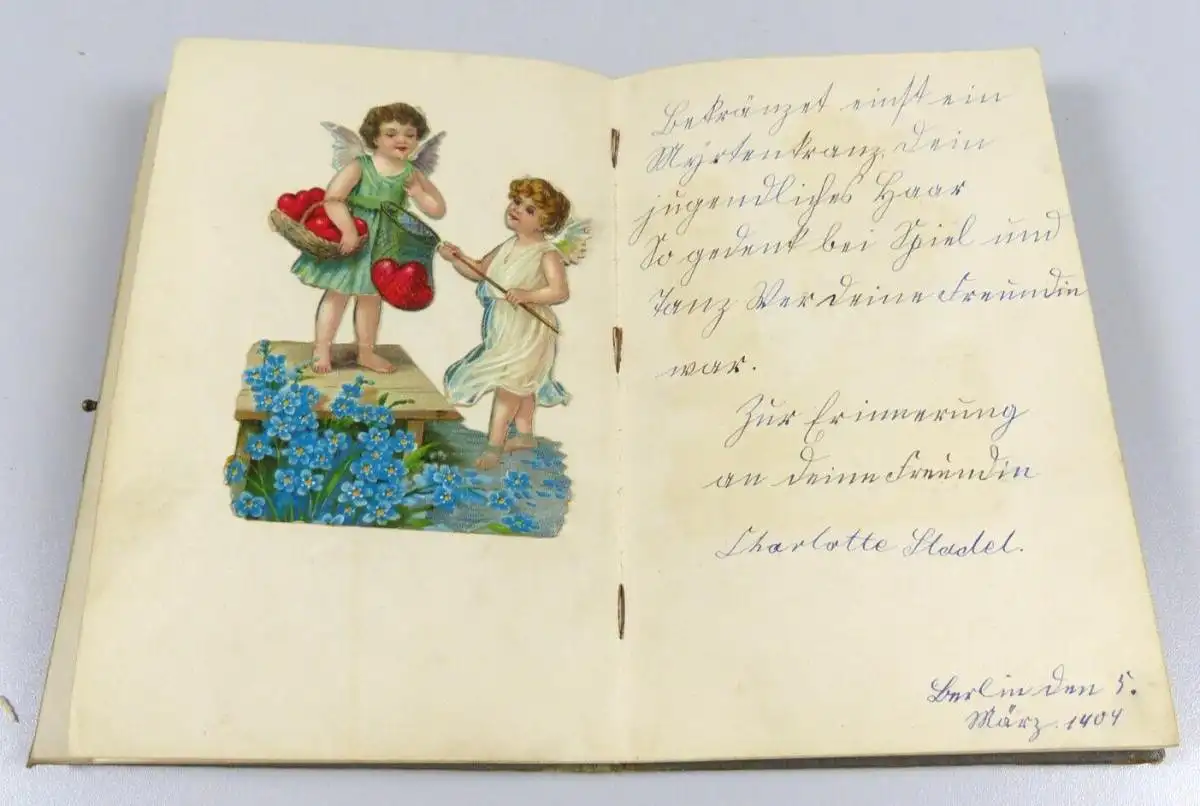 Bekränzet einst ein
Myrtenkranz, dein
jugendliches Haar
So gedenk bei Spiel und
Tanz Wer deine Freundin
war.
Zur Erinnerung
an deine Freundin
Charlotte Stadel.
Berlin den 5.
März. 1904